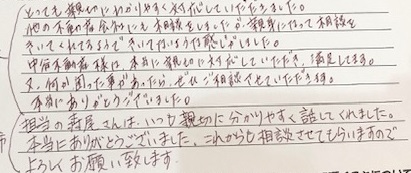 とっても親切にわかりやすく対応していただきました。
他の不動産会社にも相談をしましたが、親身になって相談を
きいてくれてるようできいてないような感じがしました。
中谷不動産様は、本当に親切に対応していただき、満足してます。
又、何か困った事があったら、ぜひご相談させていただきます。
本当にありがとうございました。
担当の寿尾さんは、いつも親切に分かりやすく話してくれました。
本当にありがとうございました。これからも相談させてもらいますので
よろしくお願い致します